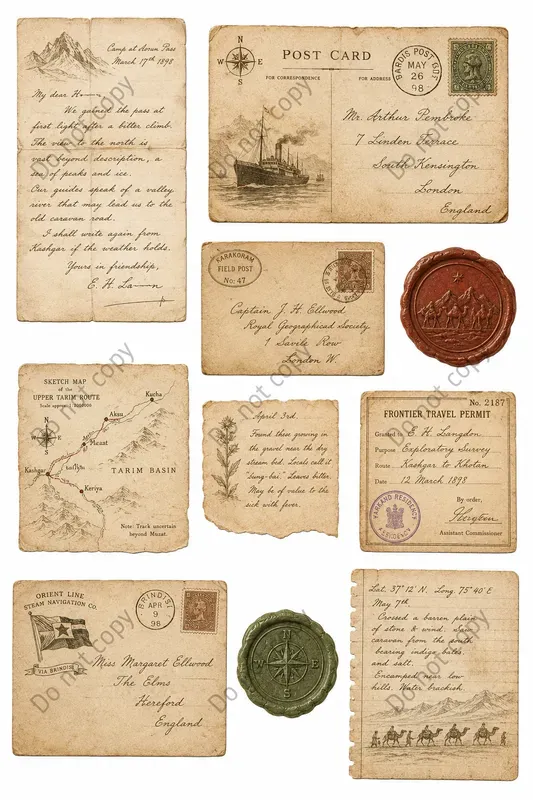 Camp at Sorun Pass
March 17th 1898
My dear H
We gained the pass at
first light after a bitter climb.
The view to the north is
vast beyond description, a
sea of peaks and ice.
Our guides speak of a valley
river that may lead us to the
old caravan road.
I shall write again from
Kashgar if the weather holds.
Yours in friendship,
E. H. La
N
W E
S
POST CARD
FOR CORRESPONDENCE
FOR ADDRESS
MAY
26
98
Mr. Arthur Pembroke
7 Linden Terrace
South Kensington
London
England
KARAKORAM
FIELD POST
No: 47
Captain J. H. Ellwood
Royal Geographicad Society
1 Savile Row
London W.
SKETCH MAP
of the
UPPER TARIM ROUTE
Scale approx.
N
W E
Kucha
Aksu
Muzat
Kashgar
TARIM BASIN
Keriya
Note: Track uncertain
beyond Muzat.
April 3rd.
Found these growing in
the gravel near the dry
stream bed. Locals call it
"sung-bai." Leaves bitter.
May be of value to the
sick with fever.
No. 2187
FRONTIER TRAVEL PERMIT
Granted to E. H. Langdon
Purpose Exploratory Survey
Route Kashgar to Khotan
Date 12 March 1898
By order,
Assistant Commissioner
YARKAND RESIDENCY
ORIENT LINE
STEAM NAVIGATION CO.
VIA BRINDISI
BRINDISI
APR
9
98
Miss Margaret Ellwood
The Elms
Hereford
England
N
W E
S
Lat. 37°12' N. Long. 75°40' E
May 7th.
Crossed a barren plain
of stone & wind. Saw
caravan from the south
bearing indigo bales
and salt.
Encamped near low
hills. Water brackish
Do not copy
Do not copy
Do not copy
Do not copy
Do not copy
Do not copy
Do not copy
Do not copy
Do not copy